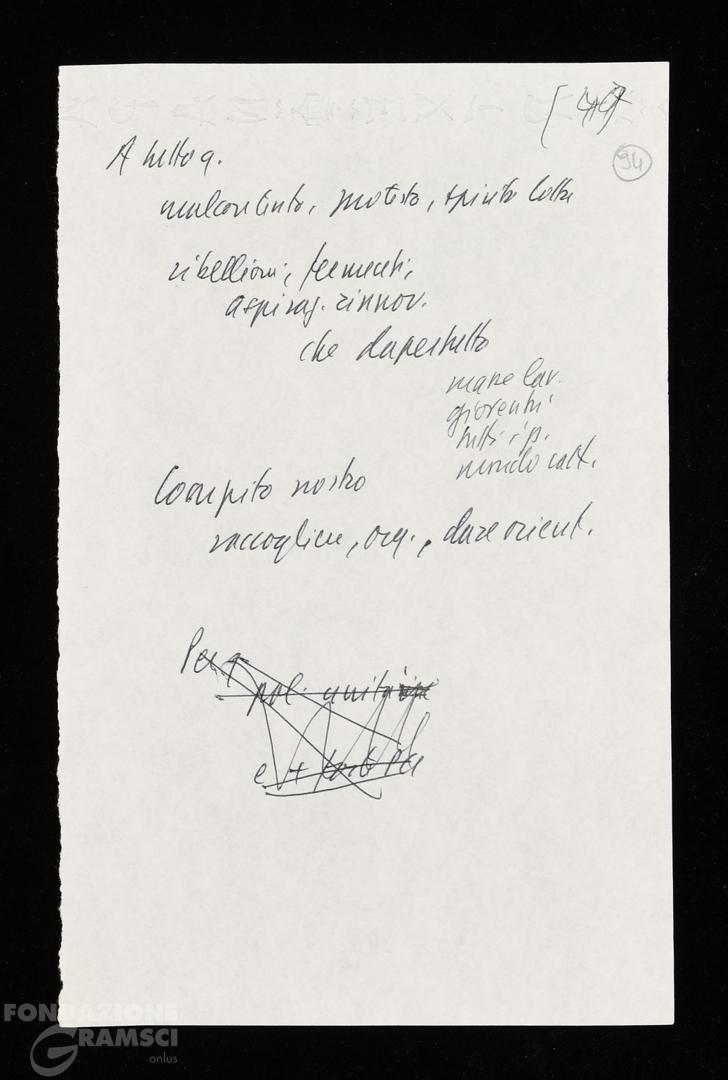 94
A tutto q.
malcontento, protesta, spirito lotta
ribellioni, fermenti,
aspiraz. rinnov.
che dapertutto
masse lav.
gioventù
tutti i p.
mondo catt.
Compito nostro
raccogliere, org., dare orient.
Per q
pol. unitaria
e + forte PCI
FONDAZIONE
GRAMSCI
onlus